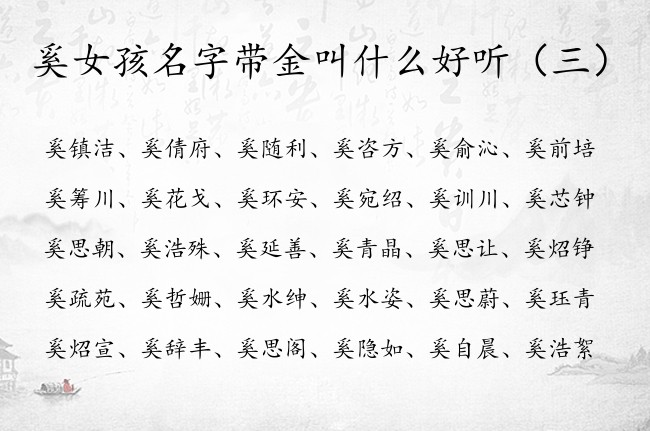 奚女孩名字带金叫什么好听（三）
奚镇洁、奚倩府、奚随利、奚咨方、奚俞沁、奚前培
奚筹川、奚花戈、奚环安、奚宛绍、奚训川、奚芯钟
奚思朝、奚浩殊、奚延善、奚青晶、奚思让、奚炤铮
奚疏苑、奚哲姗、奚水绅、奚水姿、奚思蔚、奚珏青
奚炤宣、奚辞丰、奚思阁、奚隐如、奚自晨、奚浩絮